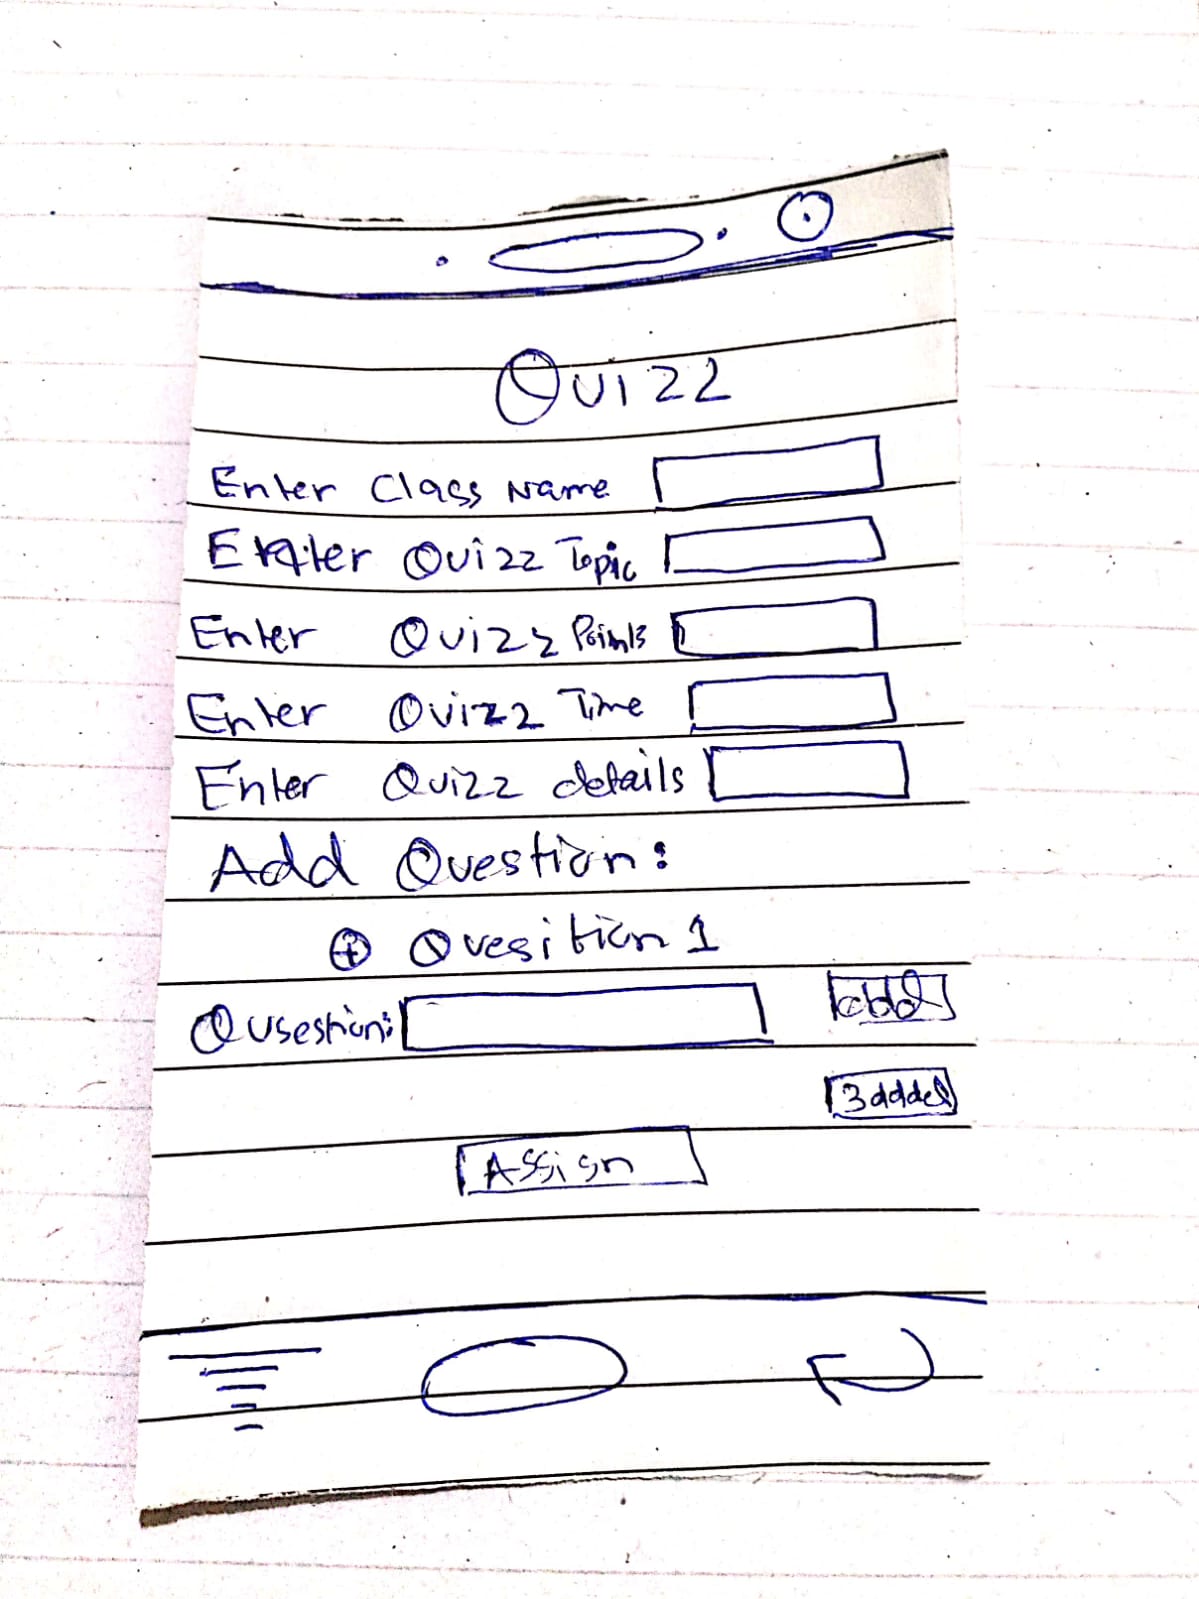 Quizz
Enter Class Name
Enter Quizz Topic
Enter Quizz Points
Enter Quizz Time
Enter Quizz details
Add Question:
⊕ Quesition 1
Qusestion:
add
3 added
Assign